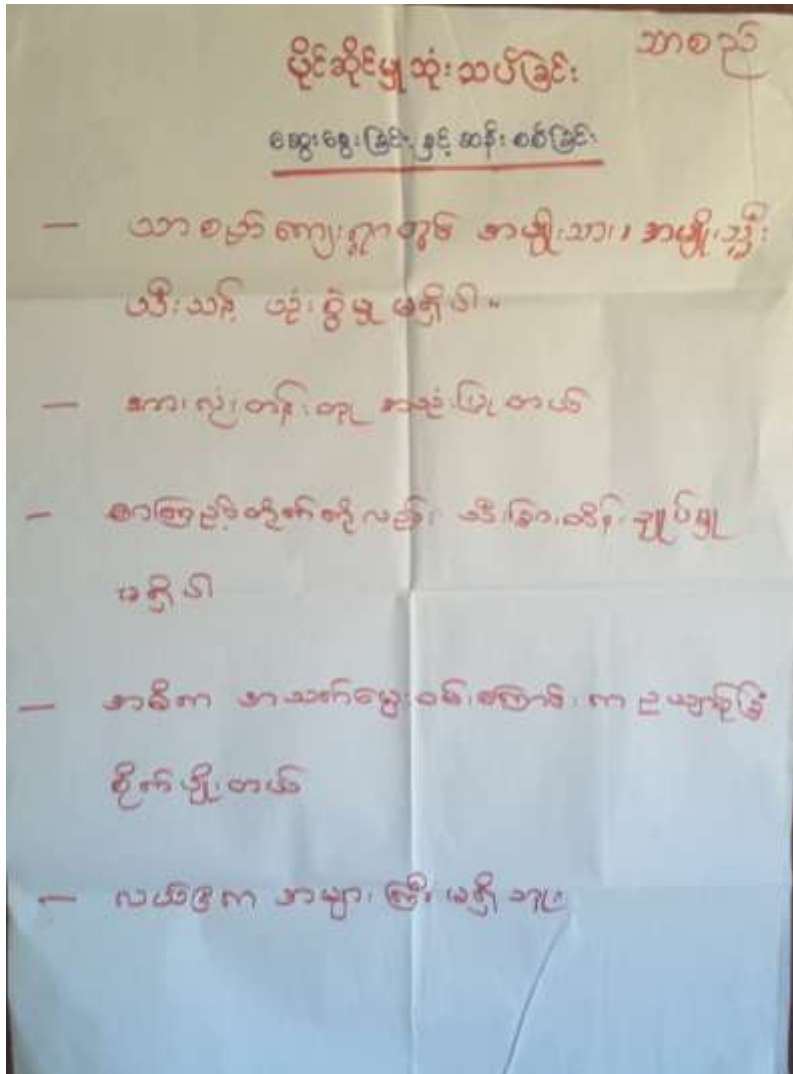 သာစည်
ပိုင်ဆိုင်မှုသုံးသပ်ခြင်း
ဆွေးနွေးခြင်း နှင့် ဆန်းစစ်ခြင်း
– သာစည်ကျေးရွာတွင် အမျိုးသား၊ အမျိုးသ္မီး
သီးသန့် သုံးစွဲမှု မရှိပါ။
– အားလုံးတန်းတူ အသုံးပြုတယ်
– စာကြည့်တိုက်ကိုလည်း သီးခြားထိန်းချုပ်မှု
မရှိပါ
– အဓိက အသက်မွေးဝမ်းကြောင်းက ဥယျာဉ်ခြံ
စိုက်ပျိုးတယ်
– လယ်မြေက အများကြီး မရှိဘူး